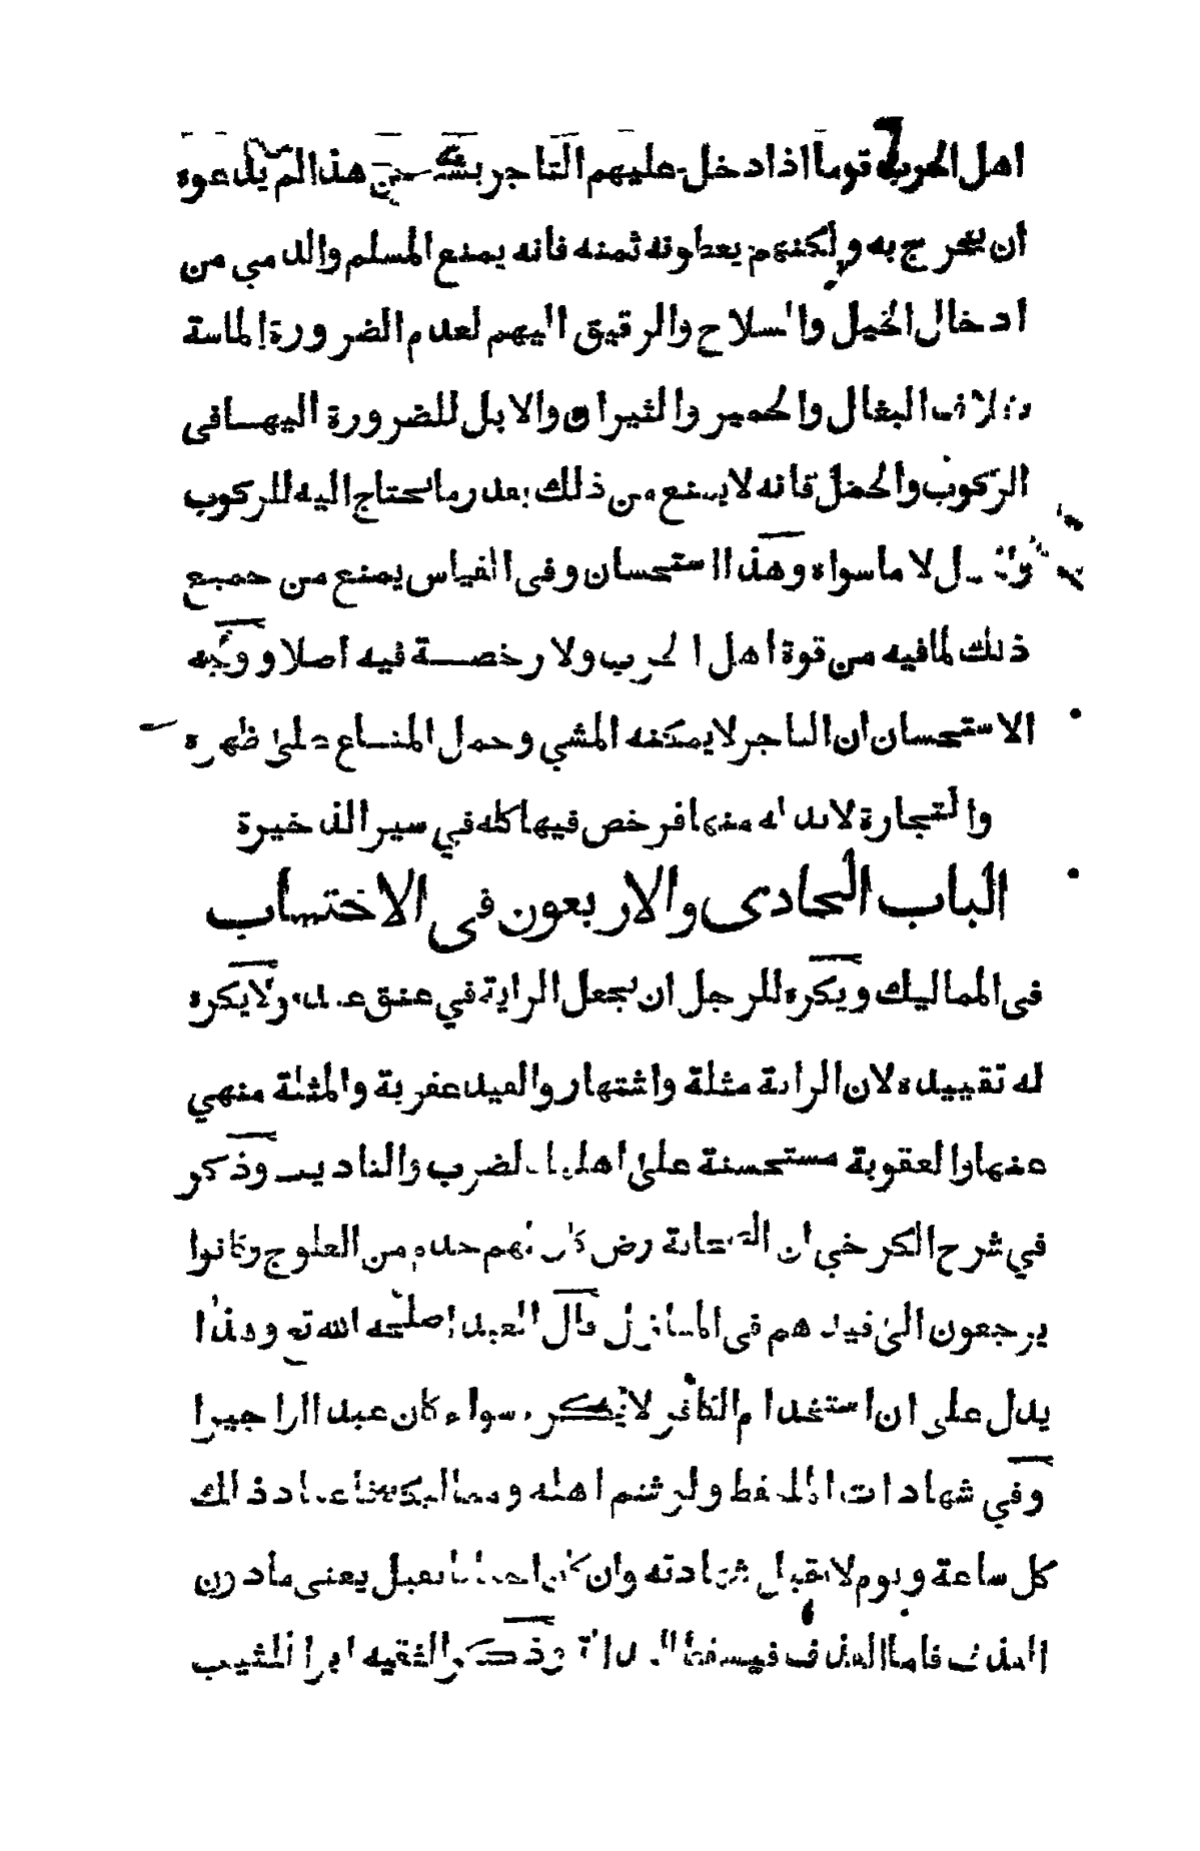 اهل الحرب قوما اذا دخل عليهم التاجر بشئ من هذا لم يدعوه
ان يخرج به ولكنهم يعطونه ثمنه فانه يمنع المسلم والذمي من
ادخال الخيل والسلاح والرقيق اليهم لعدم الضرورة الماسة
البغال والحمير والثيران والابل للضرورة اليها فى
الركوب والحمل فانه لا يمنع من ذلك بقدر ما يحتاج اليه للركوب
لا ما سواه وهذا استحسان وفى القياس يمنع من جميع
ذلك لما فيه من قوة اهل الحرب ولا رخصة فيه اصلا ووجه
الاستحسان ان التاجر لا يمكنه المشي وحمل المتاع على ظهره
والتجارة لابد له منها فرخص فيها كله في سير الذخيرة
الباب الحادى والاربعون فى الاحتساب
فى المماليك ويكره للرجل ان يجعل الراية في عنق عبده ولا يكره
له تقييده لان الراية مثلة واشتهار والقيد عقوبة والمثلة منهي
عنها والعقوبة مستحسنة على اهلها الضرب والتاديب وذكر
في شرح الكرخي ان الصحابة رض كان لهم خدم من العلوج وكانوا
يرجعون الى فيد هم فى المنازل قال العبد اصلحه الله تع وهذا
يدل على ان استخدام الكافر لا يكره سواء كان عبدا او اجيرا
وفي شهادات الملتقط ولو شتم اهله ومماليكه ذلك
كل ساعة ويوم لا يقبل شهادته وان كان احيانا يقبل يعنى ما دون
القذف فاما القذف فيسقط العدالة وذكر الفقيه ابو الليث